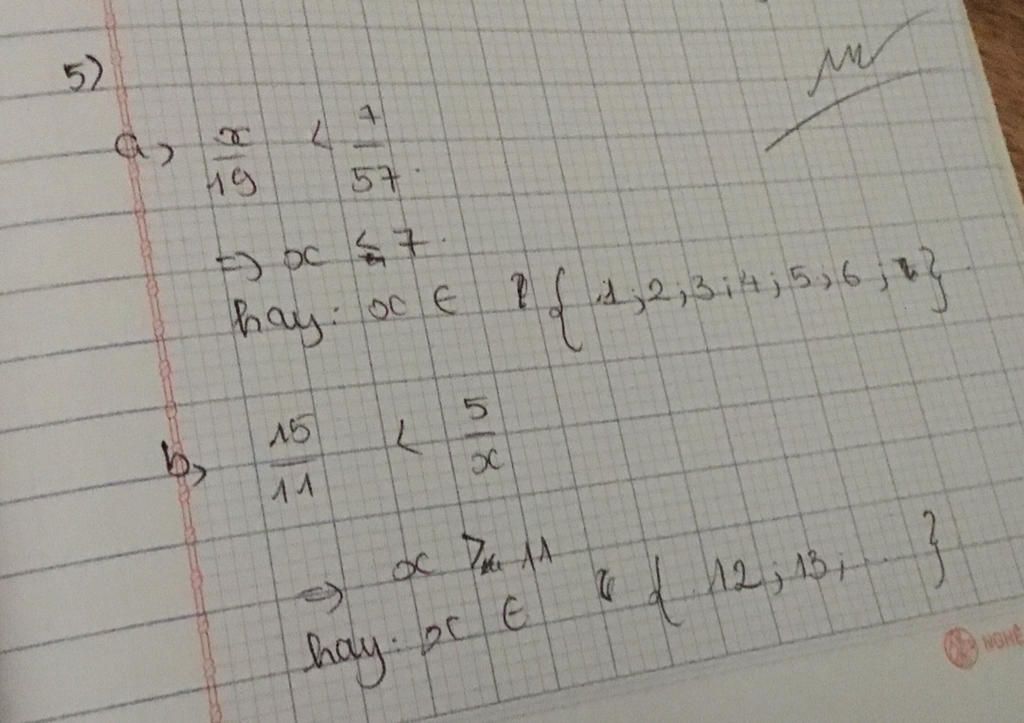 5)
a, x/19 < 7/57.
=> x ≤ 7.
hay: x ∈ { 1; 2; 3; 4; 5; 6; }
b, 15/11 < 5/x
=> x > 11
hay: x ∈ { 12; 13; ... }
NGHÊ